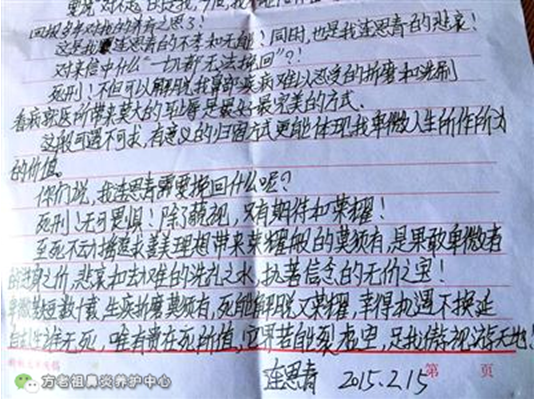 回报多年对我的养育之恩了!
这是我连思青的不孝和无能!同时,也是我连思青的悲哀!
对来信中什么“一切都无法挽回”?!
死刑!不但可以解脱我鼻部疾病难以忍受的折磨和洗刷
看病联医所带来莫大的耻辱是最好最完美的方式.
这般可遇不可求,有意义的归宿方式更能体现我卑微人生所作所为
的价值。
你们说,我连思青需要挽回什么呢?
死刑!无可畏惧!除了藐视,只有期待和荣耀!
至死不动摇追求善美理想带来荣耀般的莫须有,是果敢卑微者
的进身之价,悲哀和劫难的洗礼之水,执着信念的无价之宝!
卑微某短数十载,生疾折磨莫须有,死能解脱又荣耀,幸得机遇不换延
自古人生谁无死,唯有贵在死价值,它果若能裂虚空,足我傲视游天地!
连思青 2015.2.15
第 页
方老祖鼻炎养护中心